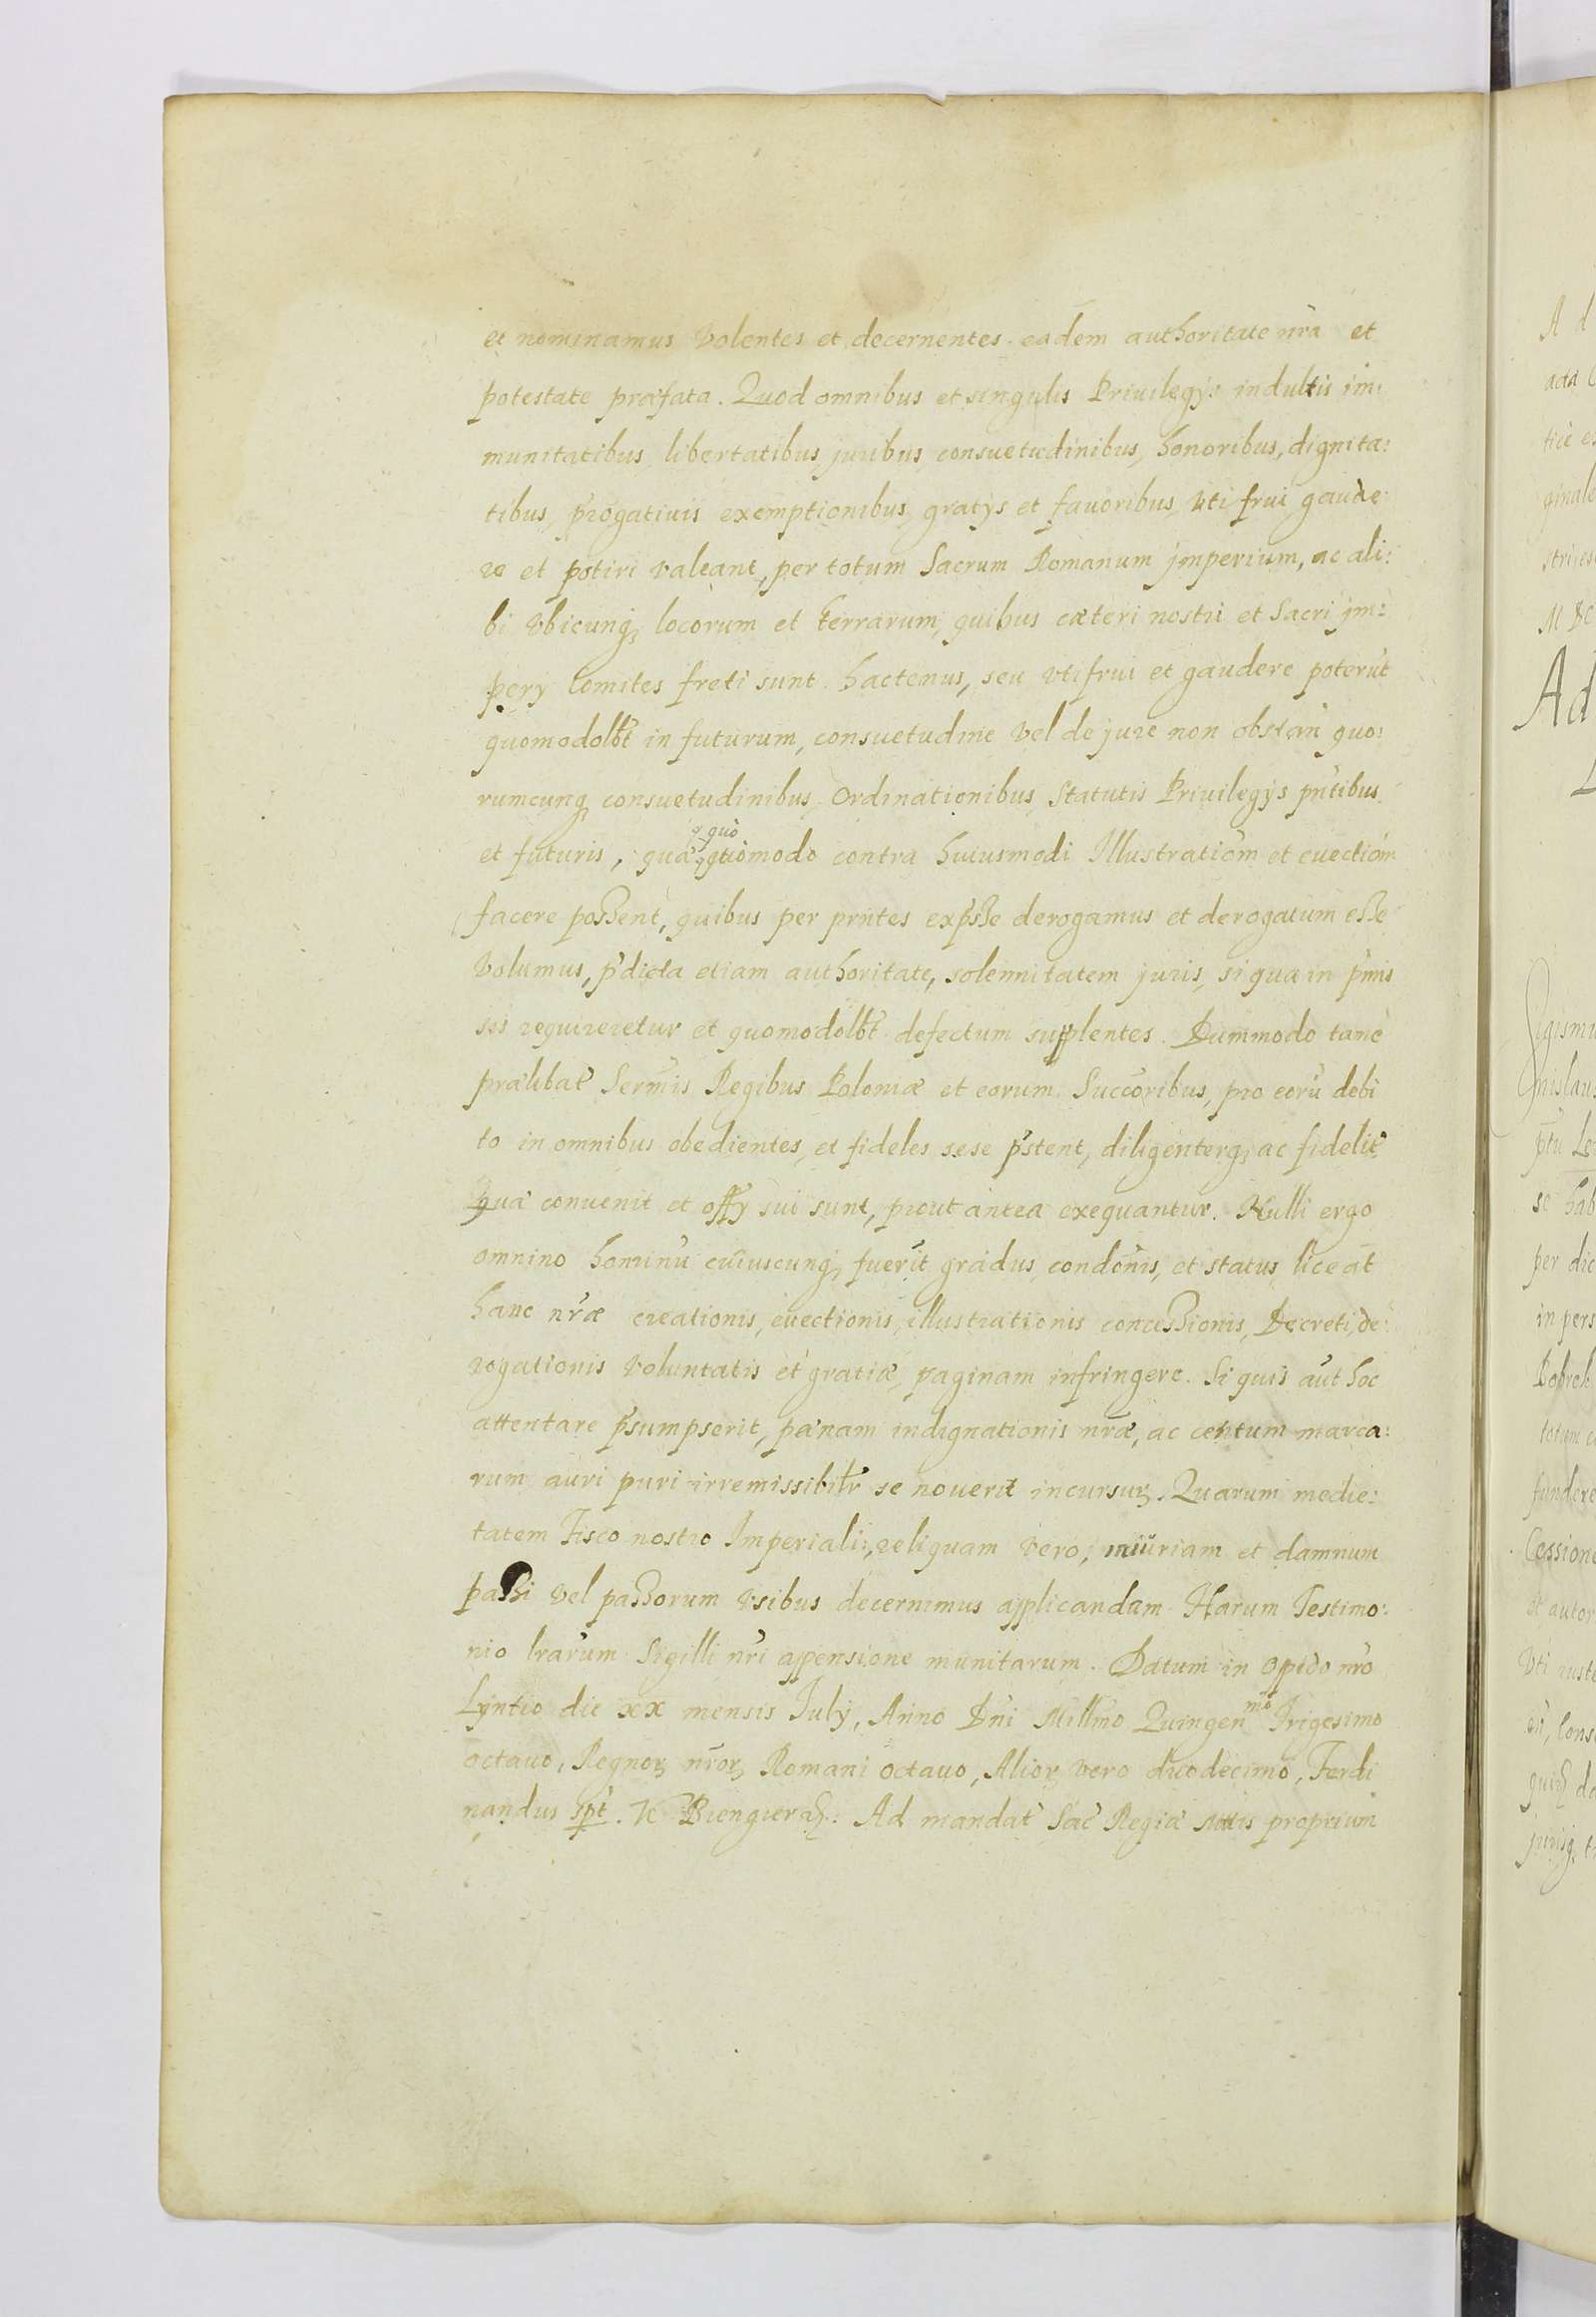 et nominamus Volentes et decernentes eadem authoritate nr̃a et
potestate præfata. Quod omnibus et singulis Priuilegÿs indultis im:
munitatibus, libertatibus, juribus, consuetudinibus, honoribus, dignita:
tibus, p̃rogatiuis exemptionibus, gratÿs et fauoribus, vti frui gaude
re et potiri valeant, per totum Sacrum Romanum jmperium, ac ali:
bi vbicunqꝫ locorum et terrarum, quibus cæteri nostri et Sacri jm:
perÿ Comites freti sunt hactenus, seu vti frui et gaudere poterũt
quomodolb̃t in futurum, consuetudine vel de jure non obstañ quo:
rumcunqꝫ consuetudinibus, Ordinationibus, Statutis Priuilegÿs pñtibus
et futuris, quæ quomodo contra huiusmodi Illustratiõm et euectiõm
facere possent, quibus per prñtes exp̃sse derogamus et derogatum esse
volumus, p̃dicta etiam authoritate, solennitatem juris, si qua in p̃mis
sis requireretur et quomodolb̃t defectum supplentes. Dummodo tamẽ
prælibat̃ Serm̃is Regibus Poloniæ et eorum Succõribus, pro eorũ debi
to in omnibus obedientes, et fideles sese p̃stent, diligenterqꝫ ac fidelit̃
quæ conuenit et offÿ sui sunt, prout antea exequantur. Nulli ergo
omnino hominũ cuiuscunqꝫ fuerit gradus, condõnis, et status liceat
hanc nr̃æ creationis, euectionis, illustrationis concessionis, Decreti, de:
rogationis voluntatis et gratiæ, paginam infringere. Si quis aũt hoc
attentare p̃sumpserit, pænam indignationis nr̃æ, ac centum marca:
rum auri puri irremissibilr̃ se nouerit incursuꝝ. Quarum medie:
tatem Fisco nostro Imperiali, reliquam vero, iniuriam et damnum
passi vel passorum vsibus decernimus applicandam Harum Testimo:
nio lr̃arum Sigilli nr̃i appensione munitarum. Datum in oppido nr̃o
Lÿntio die xx mensis Julÿ, Anno Dñi Millm̃o Quingenᵐᵒ Trigesimo
octauo, Regnoꝝ nr̃oꝝ Romani octauo, Alioꝝ vero duodecimo, Ferdi
nandus spt̃. Ad mandat̃ Sac̃ Regiæ Mttis proprium